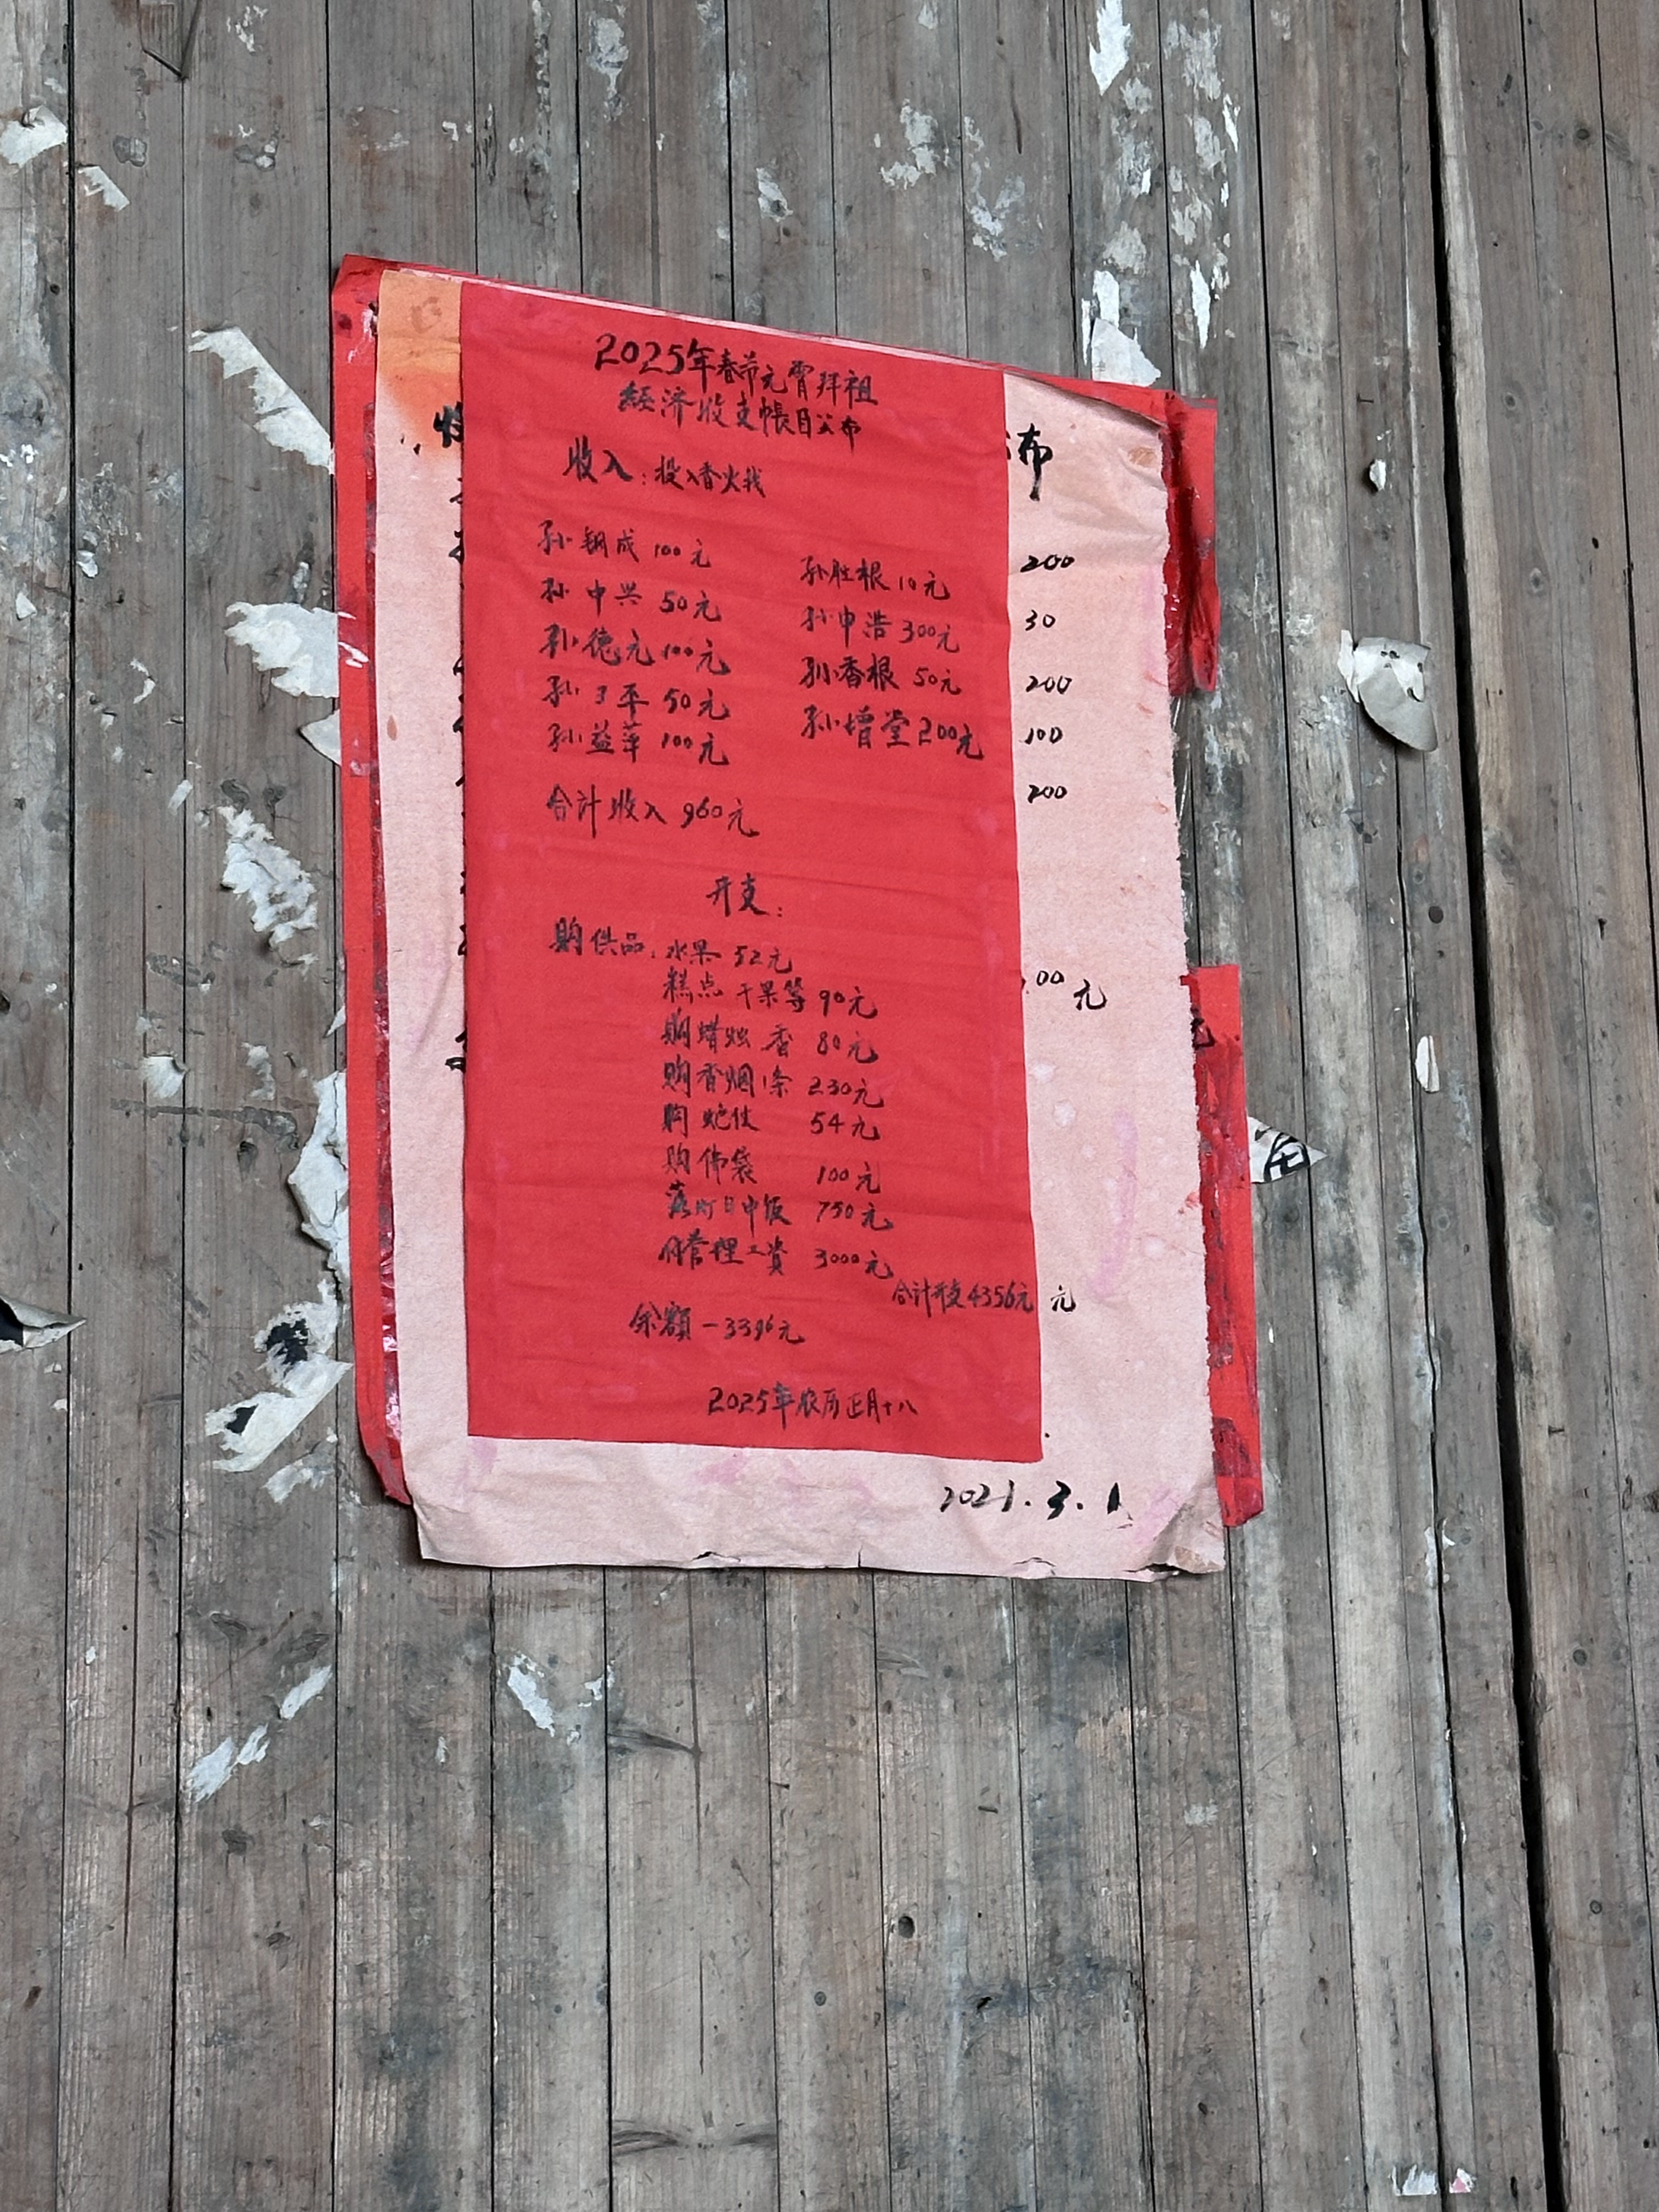 2025年春节元宵拜祖
經济收支帳目公布
收入：投入香火钱
孙钢成 100元
孙中兴 50元
孙德元 100元
孙卫平 50元
孙益萍 100元
孙胜根 10元
孙申浩 300元
孙香根 50元
孙增堂 200元
合计收入 960元
开支：
购供品：水果 52元
糕点 干果等 90元
购蜡烛 香 80元
购香烟1条 230元
购 54元
购佛袋 100元
落灯日中饭 750元
付管理工資 3000元
合计开支4356元
余额 －3396元
2025年农历正月十八
布
200
30
200
100
200
00元
元
2021.3.1